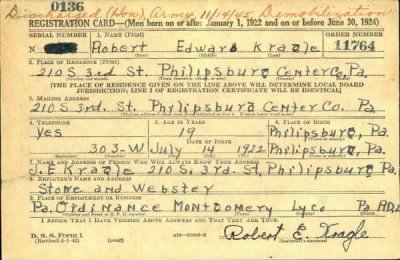 Discharged (Hon) Army 11/14/45 Demobilization
0136
REGISTRATION CARD—(Men born on or after January 1, 1922 and on or before June 30, 1924)
SERIAL NUMBER 1. NAME (Print) ORDER NUMBER
N Robert Edward Kragle 11764
(First) (Middle) (Last)
2. PLACE OF RESIDENCE (Print)
210 S. 3rd. St. Philipsburg Center Co. Pa.
[THE PLACE OF RESIDENCE GIVEN ON THE LINE ABOVE WILL DETERMINE LOCAL BOARD
JURISDICTION; LINE 2 OF REGISTRATION CERTIFICATE WILL BE IDENTICAL]
3. MAILING ADDRESS
210 S. 3rd. St. Philipsburg Center Co. Pa.
4. TELEPHONE 5. AGE IN YEARS 6. PLACE OF BIRTH
Yes 19 Philipsburg,
DATE OF BIRTH
303-W July 14 1922 Pa.
7. NAME AND ADDRESS OF PERSON WHO WILL ALWAYS KNOW YOUR ADDRESS
J. E Kragle 210 S. 3rd. St. Philipsburg Pa.
8. EMPLOYER'S NAME AND ADDRESS
Stone and Webster
9. PLACE OF EMPLOYMENT OR BUSINESS
Pa. Ordinance Montgomery Lyco Pa.
I AFFIRM THAT I HAVE VERIFIED ABOVE ANSWERS AND THAT THEY ARE TRUE.
D. S. S. Form 1
(Revised 6-1-42)
Robert E. Kragle